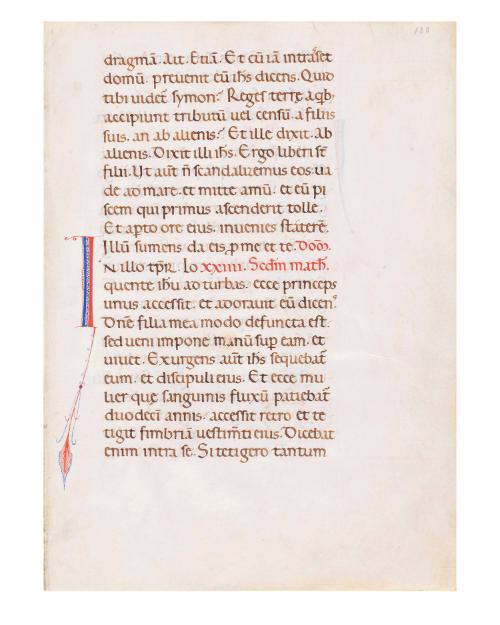 130
dragmā. Ait. Etiā. Et cū iā intrasset
domū. pͤuenit eū ihs dicens. Quid
tibi uidet᷑ symon? Reges terre a qb᷒
accipiunt tributū uel censū. a filiis
suis. an ab alienis? Et ille dixit. Ab
alienis. Dixit illi ihs. Ergo liberi st̄
filii. Ut aut̄ n̄ scandalizemus eos. ua
de ad mare. et mitte amū. et eū pi
scem qui primus ascenderit tolle.
Et apto ore eius. inuenies staterē.
Illū sumens. da eis. p me et te. Dom̄.
IN illo tp̄r. Lo xxiiii. Secdm math.
quente ihu ad turbas. ecce princeps
unus accessit. et adorauit eū dicens
Dn̄e filia mea modo defuncta est.
sed ueni impone manū sup eam. et
uiuet. Exurgens aut̄ ihs sequebat᷑
eum. et discipuli eius. Et ecce mu
lier que sanguinis fluxū patiebat᷑
duodecī annis. accessit retro et te
tigit fimbriā uestim̄ti eius. Dicebat
enim intra se. Si tetigero tantum